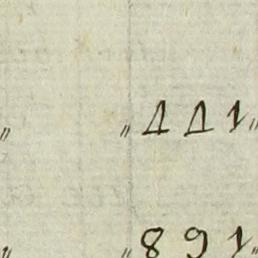 " " 441 "
" " 891 "